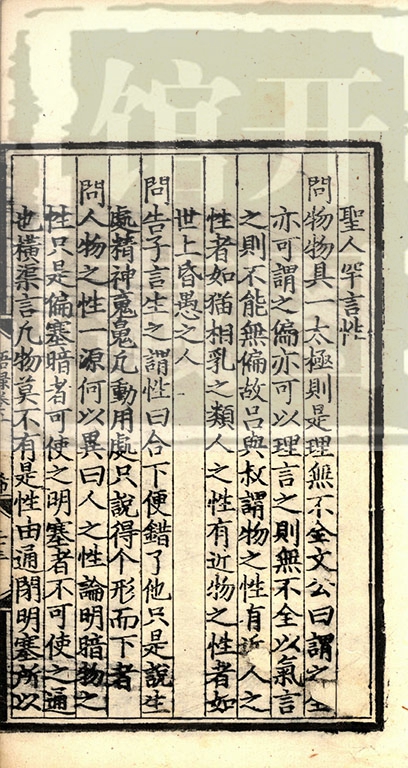 聖人罕言性
問物物具一太極則是理無不全文公曰謂之全
亦可謂之偏亦可以理言之則無不全以氣言
之則不能無偏故呂與叔謂物之性有近人之
性者如猫相乳之類人之性有近物之性者如
世上昏愚之人
問告子言生之謂性曰合下便錯了他只是說生
處精神䰟鬿凢動用處只說得个形而下者
問人物之性一源何以異曰人之性論明暗物之
性只是偏塞暗者可使之明塞者不可使之通
也橫渠言凢物莫不有是性由通閉明塞所以